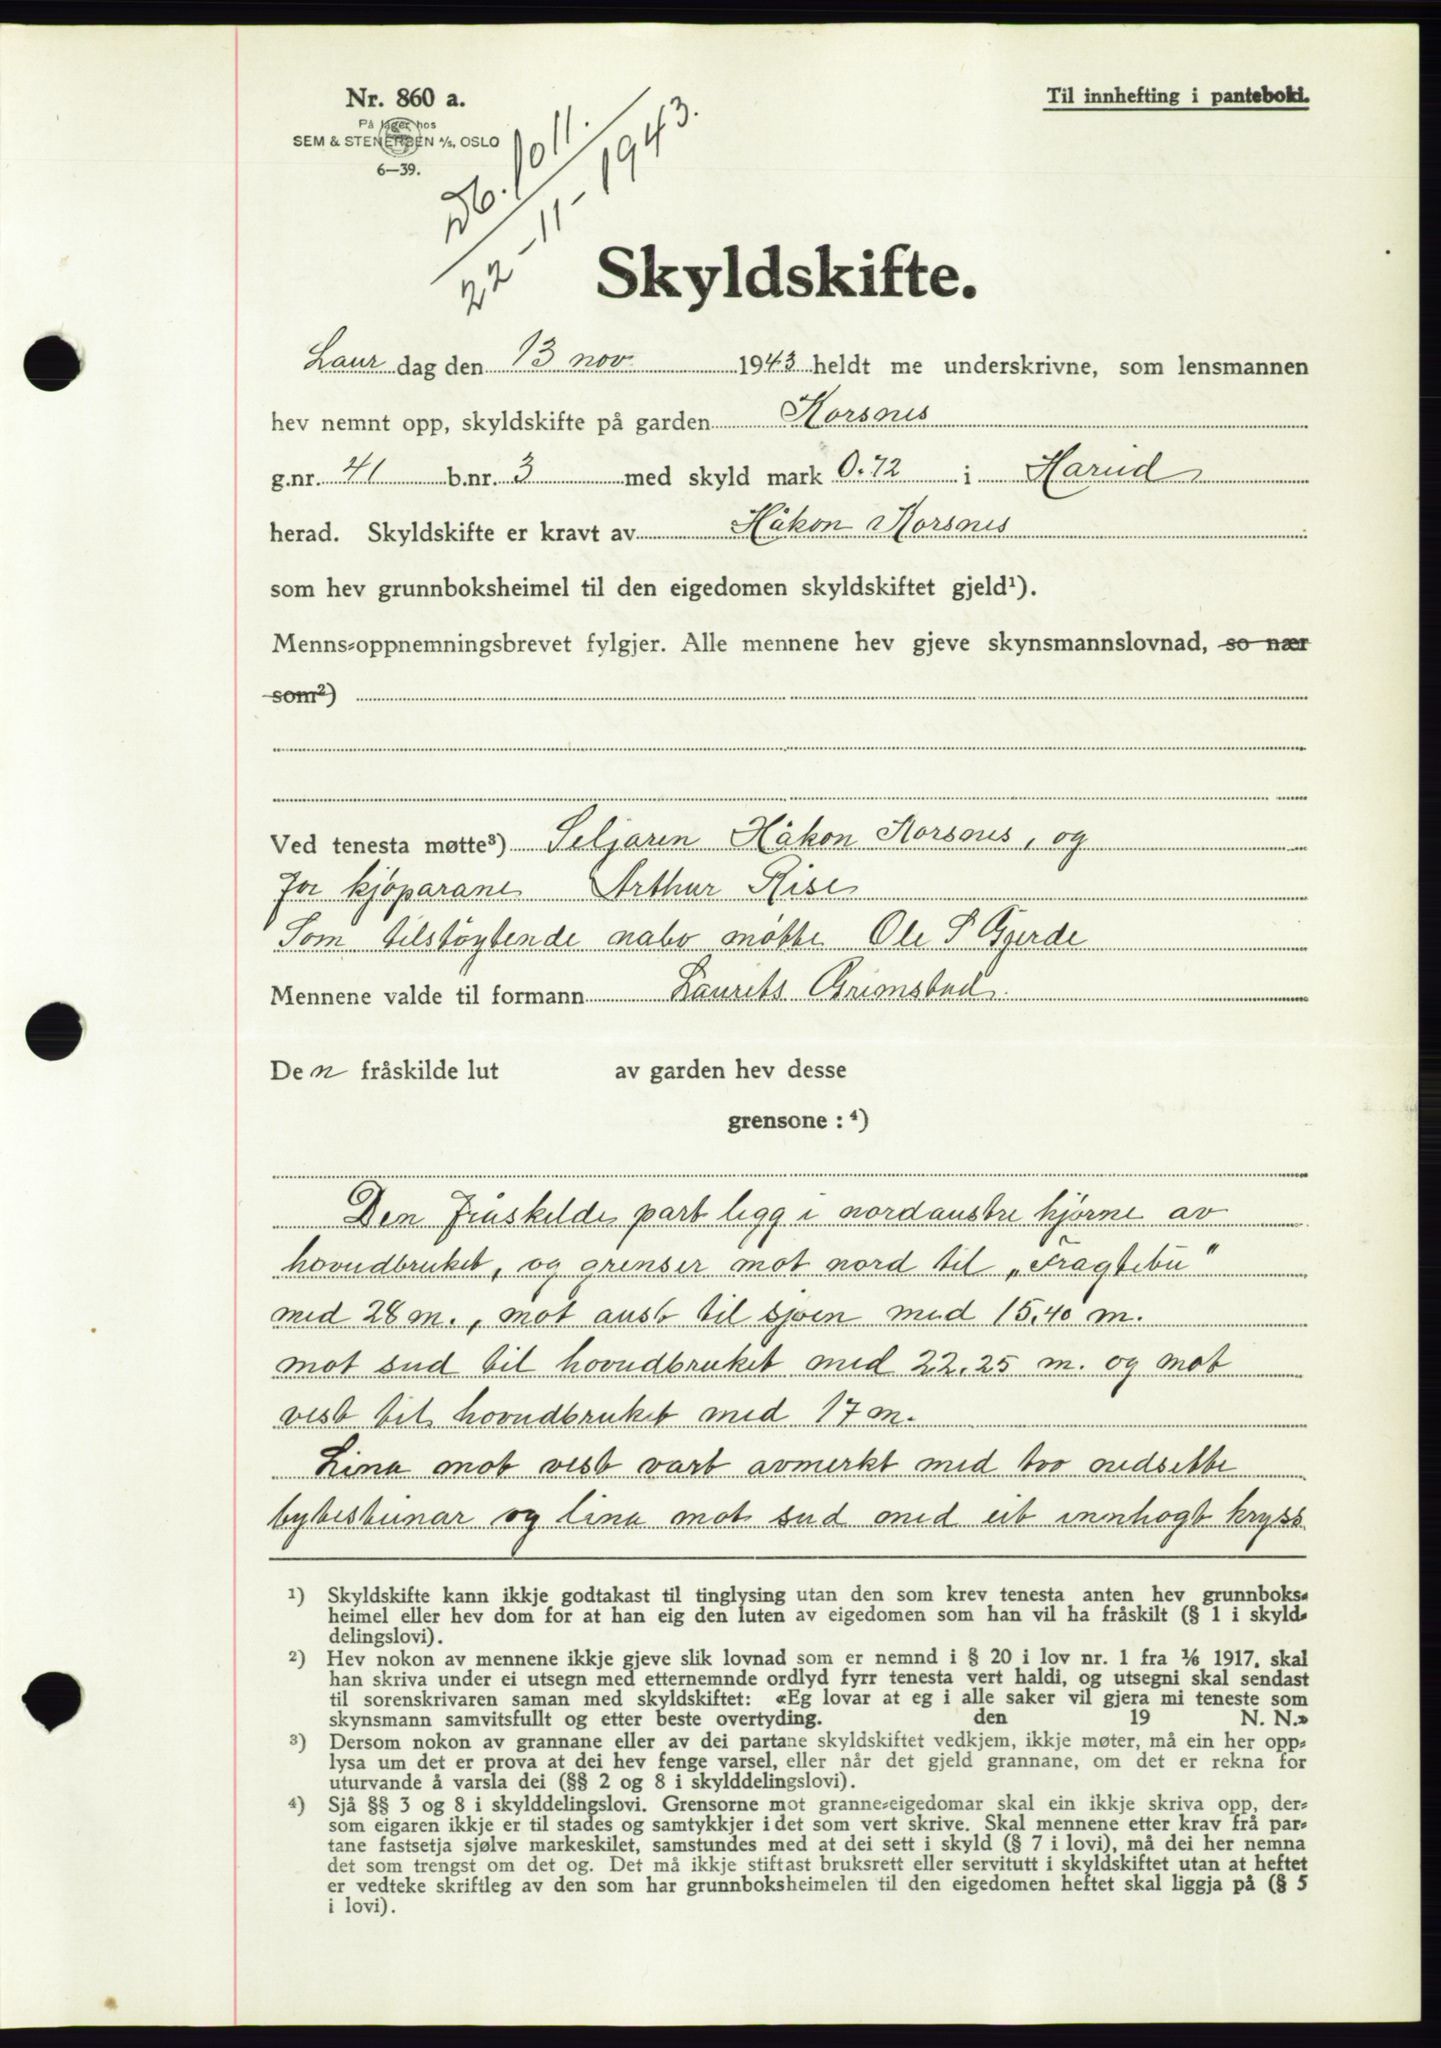 Nr. 860 a.
På lager hos
SEM & STENERSEN A/S, OSLO
6—39.
Til innhefting i panteboki.
Db. 1011.
22-11-1943.
Skyldskifte.
Laur dag den 13 nov 1943 heldt me underskrivne, som lensmannen
hev nemnt opp, skyldskifte på garden Korsnes
g.nr. 41 b.nr. 3 med skyld mark 0.72 i Hareid
herad. Skyldskifte er kravt av Håkon Korsnes
som hev grunnboksheimel til den eigedomen skyldskiftet gjeld¹).
Menns-oppnemningsbrevet fylgjer. Alle mennene hev gjeve skynsmannslovnad, so nær
som²)
Ved tenesta møtte³) Seljaren Håkon Korsnes, og
for kjøparane Arthur Rise
Som tilstøytende nabo møtte Ole S Gjerde
Mennene valde til formann Laurits Grimstad.
Den fråskilde lut av garden hev desse
grensone : ⁴)
Den fråskilde part ligg i nordaustre hjørne av
hovudbruket, og grenser mot nord til „Fragtebu"
med 28 m., mot aust til sjøen med 15.40 m.
mot sud til hovudbruket med 22.25 m. og mot
vest til hovudbruket med 17 m.
Lina mot vest vart avmerkt med two nedsette
bytesteinar og lina mot sud med eit innhogt kryss
¹) Skyldskifte kann ikkje godtakast til tinglysing utan den som krev tenesta anten hev grunnboks-
heimel eller hev dom for at han eig den luten av eigedomen som han vil ha fråskilt (§ 1 i skyld-
delingslovi).
²) Hev nokon av mennene ikkje gjeve slik lovnad som er nemnd i § 20 i lov nr. 1 fra 1/6 1917, skal
han skriva under ei utsegn med etternemnde ordlyd fyrr tenesta vert haldi, og utsegni skal sendast
til sorenskrivaren saman med skyldskiftet: «Eg lovar at eg i alle saker vil gjera mi teneste som
skynsmann samvitsfullt og etter beste overtyding. den 19 N. N.»
³) Dersom nokon av grannane eller av dei partane skyldskiftet vedkjem, ikkje møter, må ein her opp-
lysa um det er prova at dei hev fenge varsel, eller når det gjeld grannane, om det er rekna for
uturvande å varsla dei (§§ 2 og 8 i skylddelingslovi).
⁴) Sjå §§ 3 og 8 i skylddelingslovi. Grensorne mot granne-eigedomar skal ein ikkje skriva opp, der-
som eigaren ikkje er til stades og samtykkjer i det som vert skrive. Skal mennene etter krav frå par-
tane fastsetja sjølve markeskilet, samstundes med at dei sett i skyld (§ 7 i lovi), må dei her nemna
det som trengst om det og. Det må ikkje stiftast bruksrett eller servitutt i skyldskiftet utan at heftet
er vedteke skriftleg av den som har grunnboksheimelen til den eigedomen heftet skal liggja på (§ 5
i lovi).